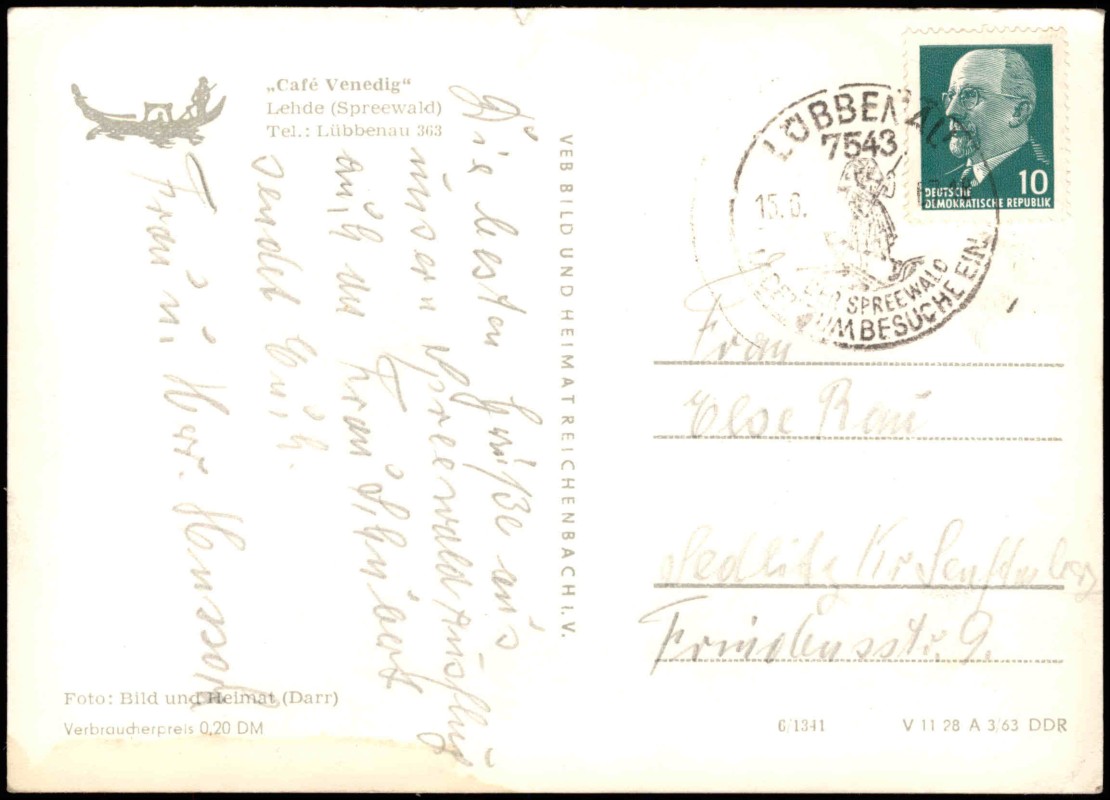 „Café Venedig“
Lehde (Spreewald)
Tel.: Lübbenau 363
Die besten Grüße aus
unseren Spreewaldausflug
auch an Frau Schubert
sendet Euch.
Frau u. Herr.
VEB BILD UND HEIMAT REICHENBACH i. V.
LÜBBENAU
7543
15.6.
SPREEWALD
ZUM BESUCHE EIN
DEUTSCHE
DEMOKRATISCHE REPUBLIK
10
Frau
Else Rau
Sedlitz Kr Senftenberg
Friedensstr. 9.
Foto: Bild und Heimat (Darr)
Verbraucherpreis 0,20 DM
6/1341
V 11 28 A 3/63 DDR